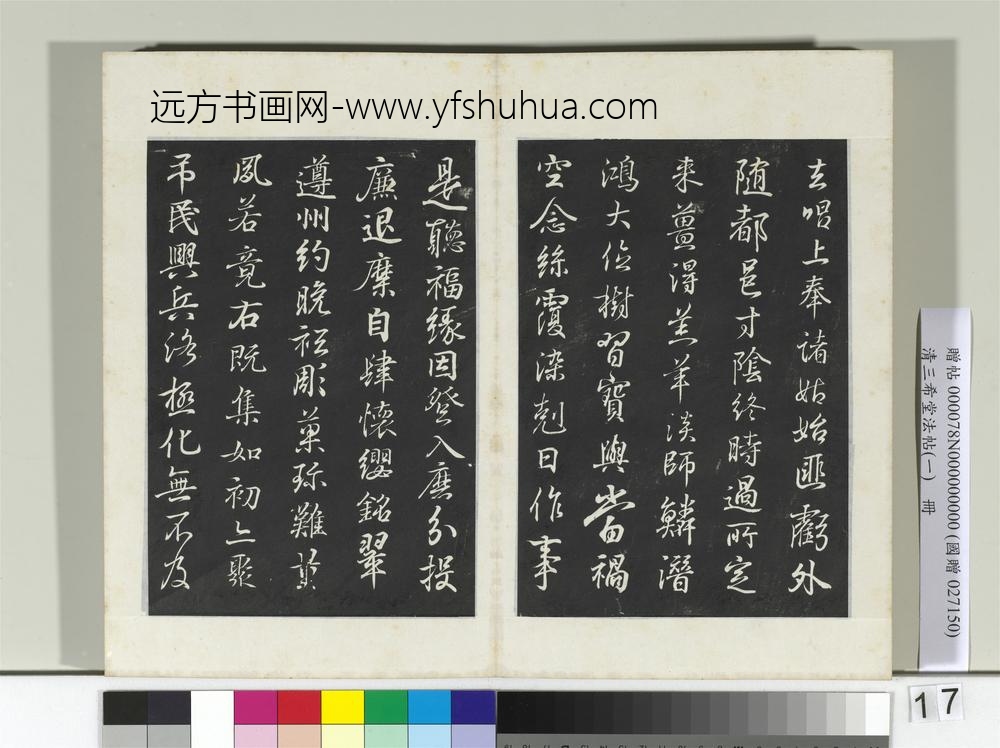 远方书画网-www.yfshuhua.com
去唱上奉諸姑始匪虧外
随都邑寸陰終時過所定
来薑淂羔羊淡師鱗潛
鴻大位樹習寶與當禍
空念絲覆染剋日作事
是聽福緣因登入磨分投
廉退糜自肆懷纓銘翠
遵州約晚松彫菓珎難
夙若竟右既集如初上聚
吊民興兵洛極化無不及
贈帖 000078N000000000 (國贈 027150)
清三希堂法帖(一) 冊
17